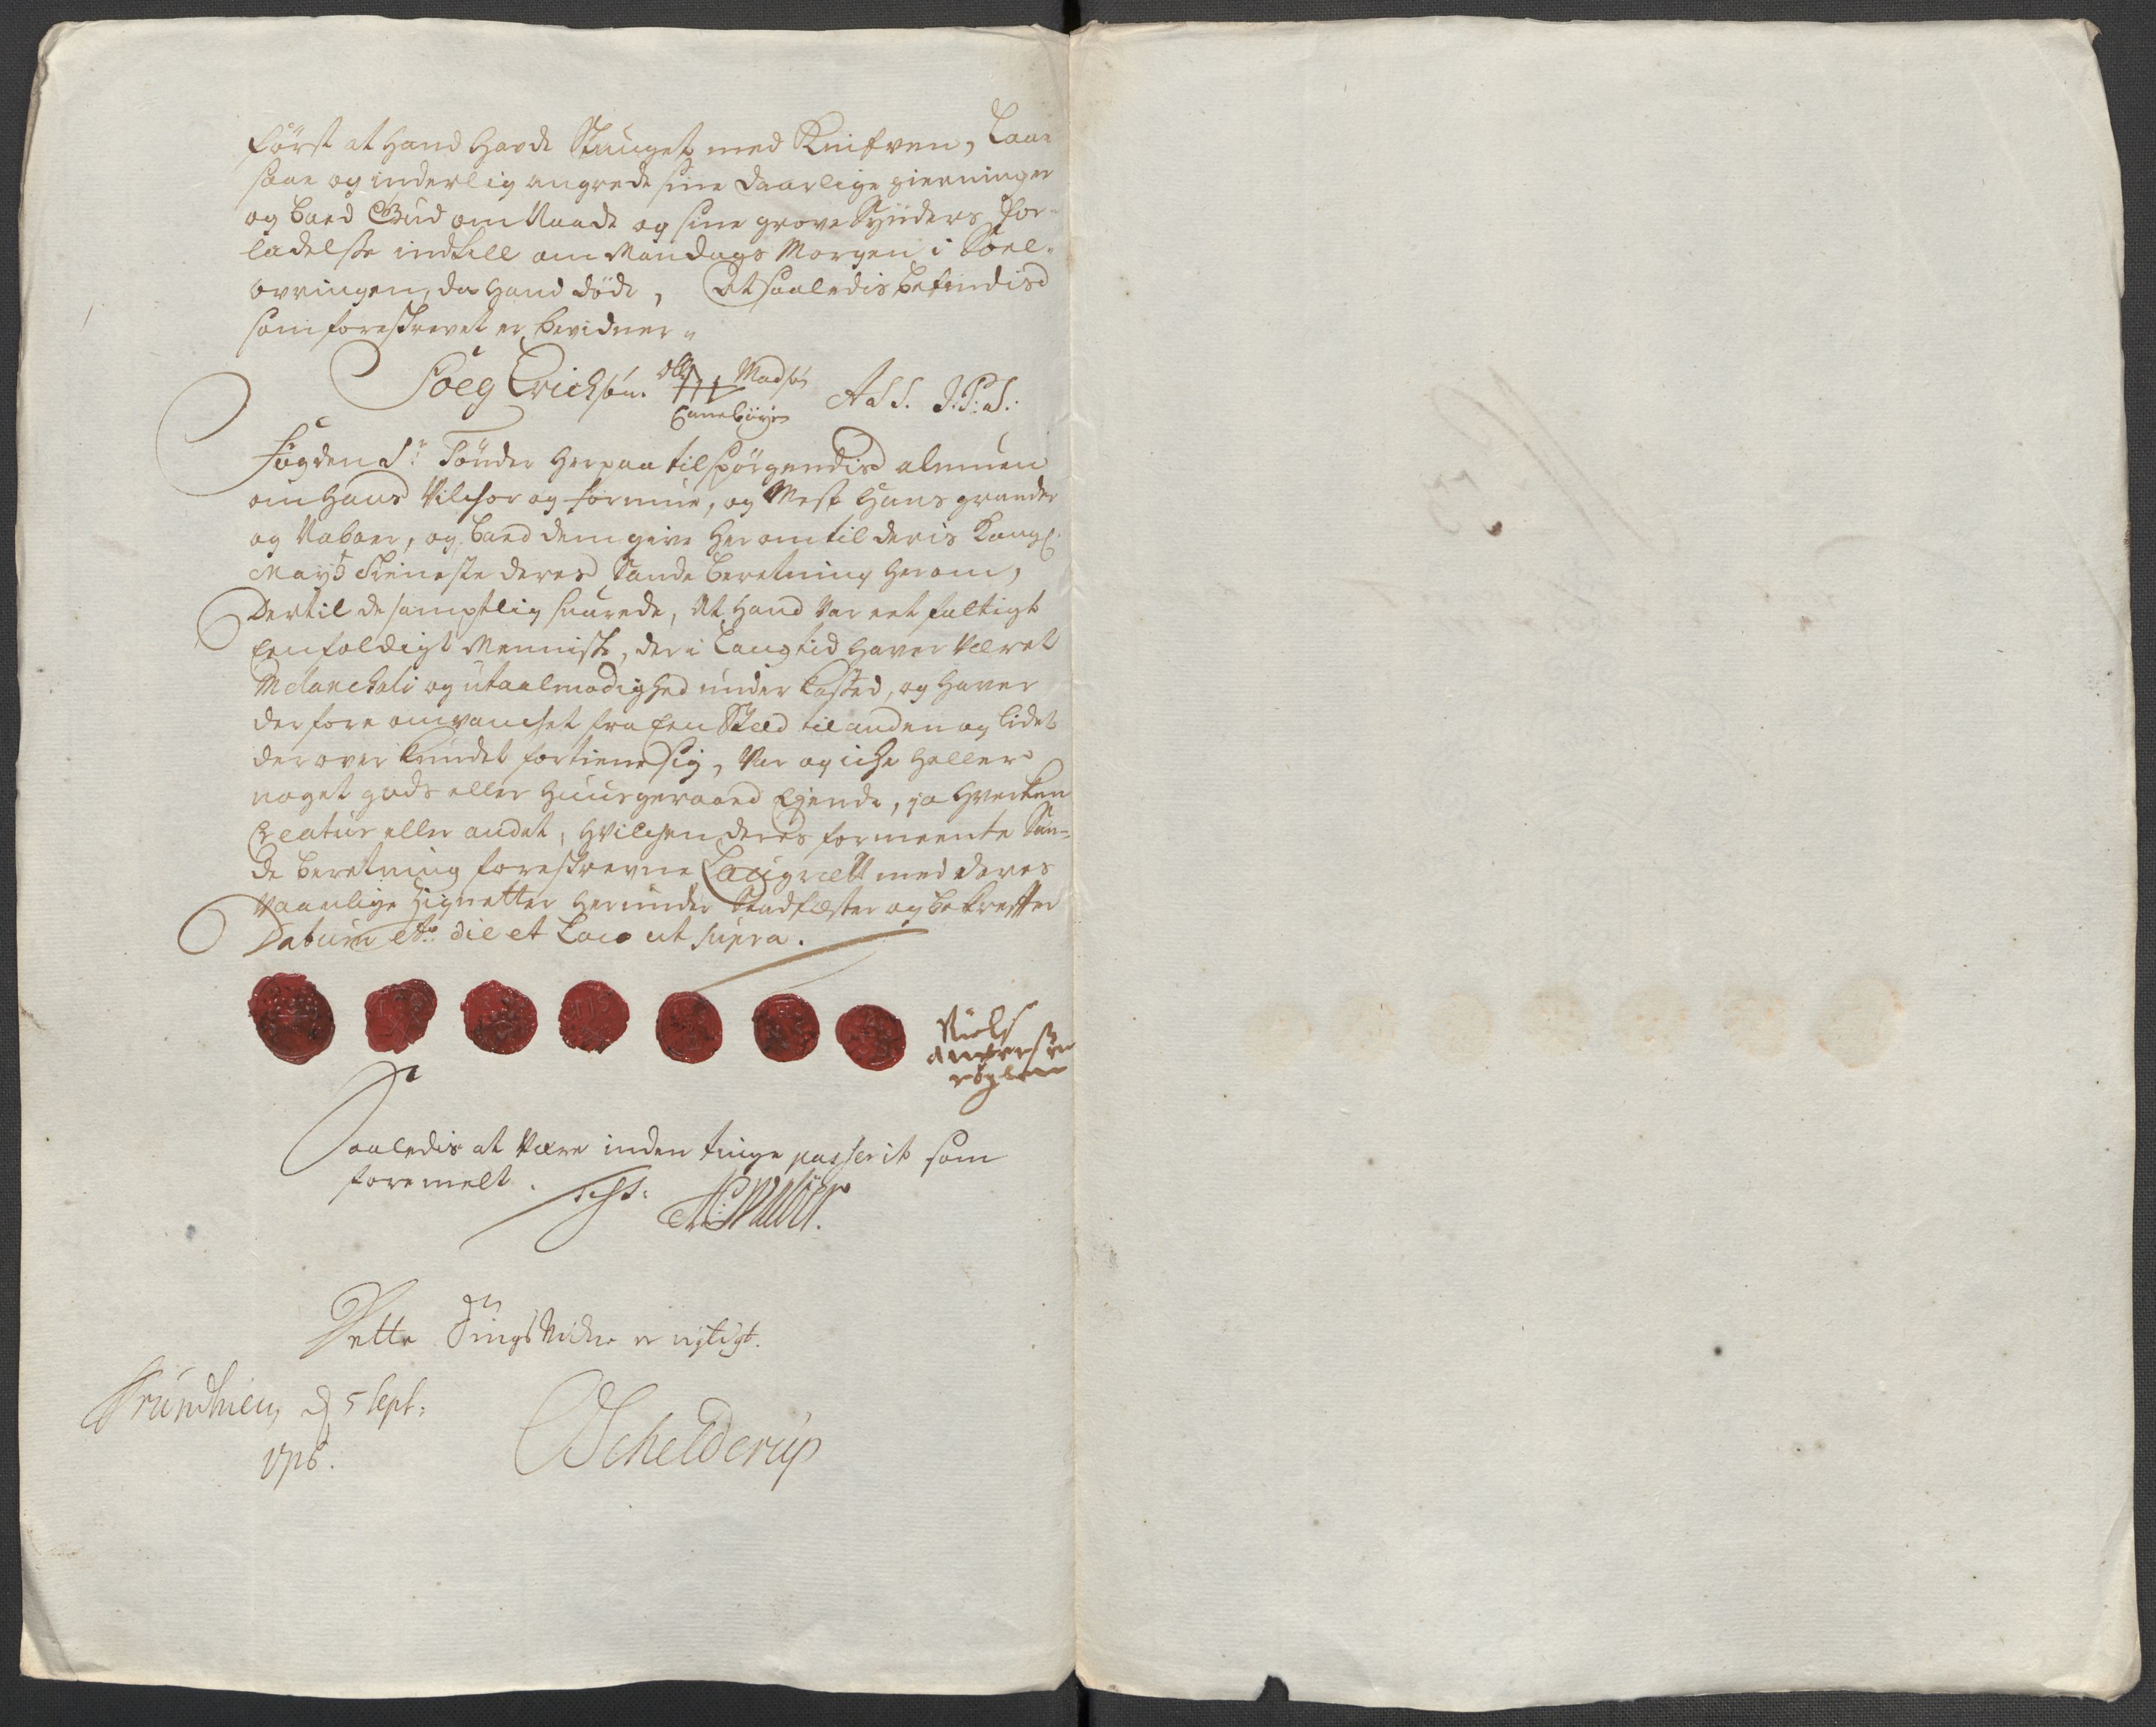 først at hand hafde Stunget med Knifven, laae
saare og inderlig angrede sine daarlige gierninger
og baed Gud om Naade og sine grove Synders for-
ladelse indtill om Mandags Morgen i Soel-
opringen, da hand døde, At saaledis befindis
som foreskrevet er, bevidner
Poeg Erichsøn. Olle Madsøn A S S. J: P: S:
Fogden Sr. Tønder herpaa tilspørgendis almuen
om hans Vilchor og formue, og Mest hans grander
og Naboer, og baed dem give her om til deris Kongl:
Mayts tieneste deres Sande beretning herom,
Dertil de samptlig suarede, At hand Var eet faltigt
Eenfoldigt Menniske, der i Lang tid haver Været
Melancholi og utaalmodighed under kasted, og haver
der fore omvancket fra Een Sted til anden og lidet
der over kundet fortiene sig, Var og icke heller
noget gods eller Huusgeraad Ejende, ja hverken
Creatur eller andet, hvilchen deres formeente San-
de beretning foreskrevne Laugrætt med deres
Vaanlige Zignetter herunder Stadfæster og bekreffter
Datum etc. die et Loco ut supra.
Niels
Anderssen
Saaledis at Være inden tinge passerit som
foremelt. Test:
Dette Tings Vidne er rigtigt.
Trundhiem, d 5 Sept:
Schelderup